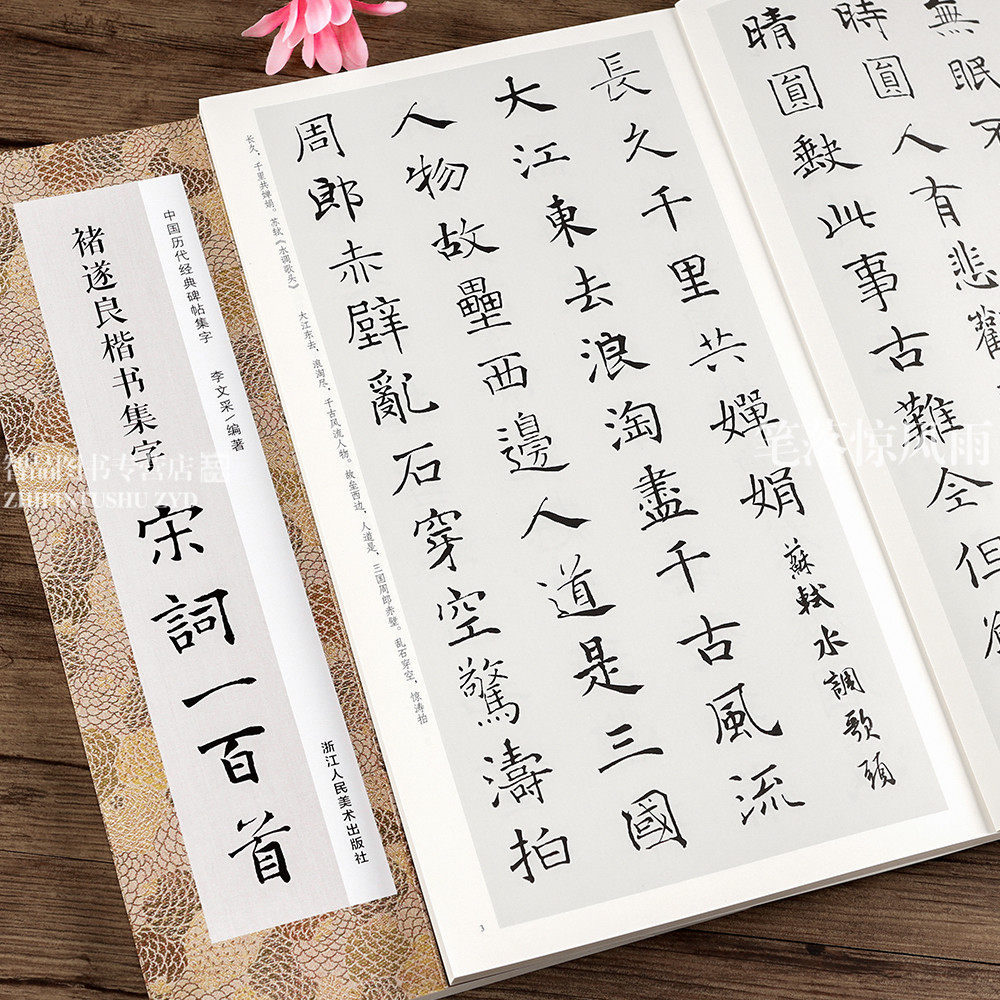 褚遂良楷书集字
宋詞一百首
中国历代经典碑帖集字
李文采/编著
浙江人民美术出版社
無眠不
時圓人有悲歡
晴圓缺此事古難全但
長久千里共嬋娟
蘇軾水調歌頭
大江東去浪淘盡千古風流
人物故壘西邊人道是三國
周郎赤壁亂石穿空驚濤拍
长久，千里共婵娟。苏轼《水调歌头》
大江东去，浪淘尽，千古风流人物。故垒西边，人道是，三国周郎赤壁。乱石穿空，惊涛拍
3
智品图书专营店
ZHIPINTUSHU ZYD
笔落惊风雨